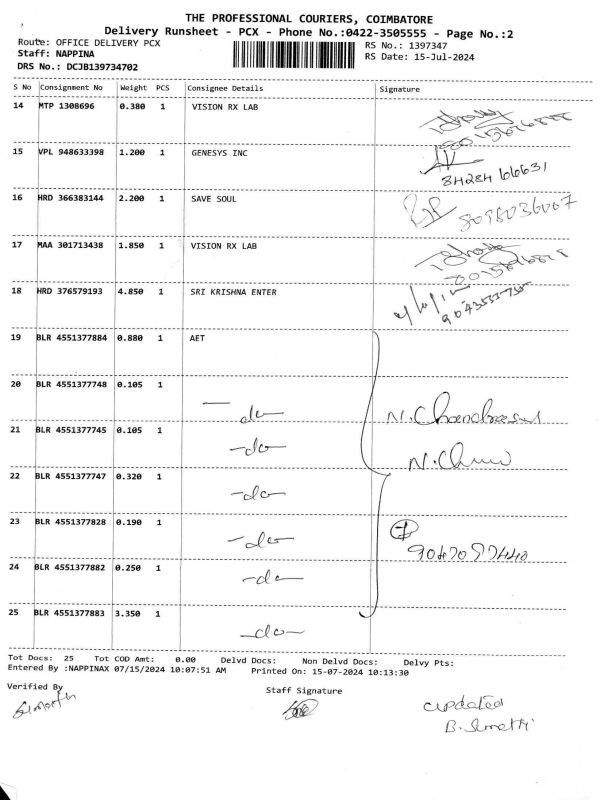 THE PROFESSIONAL COURIERS, COIMBATORE
Delivery Runsheet - PCX - Phone No.:0422-3505555 - Page No.:2
Route: OFFICE DELIVERY PCX
RS No.: 1397347
Staff: NAPPINA
RS Date: 15-Jul-2024
DRS No.: DCJB139734702
S No Consignment No Weight PCS Consignee Details Signature
14 MTP 1308696 0.380 1 VISION RX LAB
15 VPL 948633398 1.200 1 GENESYS INC
84284 66631
16 HRD 366383144 2.200 1 SAVE SOUL
8098036007
17 MAA 301713438 1.850 1 VISION RX LAB
18 HRD 376579193 4.850 1 SRI KRISHNA ENTER
19 BLR 4551377884 0.880 1 AET
20 BLR 4551377748 0.105 1
— do —
21 BLR 4551377745 0.105 1
-do-
22 BLR 4551377747 0.320 1
-do-
23 BLR 4551377828 0.190 1
-do-
24 BLR 4551377882 0.250 1
-do-
25 BLR 4551377883 3.350 1
-do-
Tot Docs: 25 Tot COD Amt: 0.00 Delvd Docs: Non Delvd Docs: Delvy Pts:
Entered By :NAPPINAX 07/15/2024 10:07:51 AM Printed On: 15-07-2024 10:13:30
Verified By
Staff Signature
updated